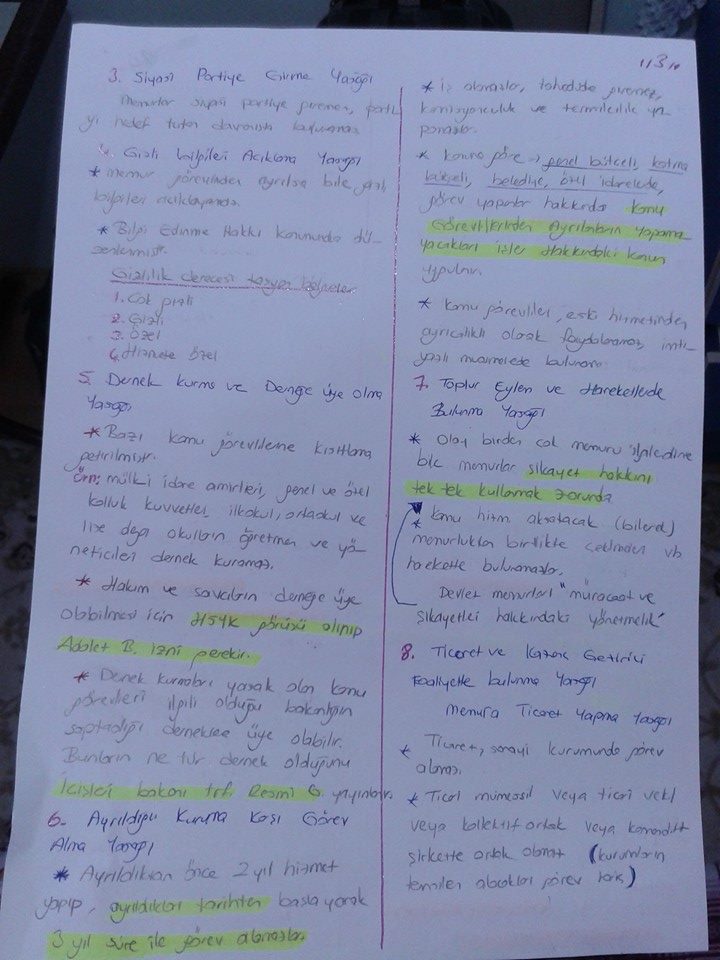 3. Siyasi Partiye Girme Yasağı
memurlar siyasi partiye giremez, parti
yi hedef tutan davranışta bulunamaz
4. Gizli Bilgileri Açıklama Yasağı
* memur görevinden ayrılsa bile gizli
bilgileri açıklayamaz.
* Bilgi Edinme Hakkı kanununda dü-
zenlenmiştir.
Gizlilik derecesi taşıyan bilgiler
1. Çok gizli
2. Gizli
3. Özel
4. Hizmete Özel
5. Dernek kurma ve Derneğe üye olma
Yasağı
* Bazı kamu görevlilerine kısıtlama
getirilmiştir.
Örn: mülki idare amirleri, genel ve özel
kolluk kuvvetleri, ilkokul, ortaokul ve
lise dengi okulların öğretmen ve yö-
neticileri dernek kuramaz.
* Hakim ve savcıların derneğe üye
olabilmesi için HSYK görüşü alınıp
Adalet B. izni gerekir.
* Dernek kurmaları yasak olan kamu
görevlileri ilgili olduğu bakanlığın
saptadığı derneklere üye olabilir.
Bunların ne tür dernek olduğunu
İçişleri bakanı trf. Resmi G. yayınlanır.
6. Ayrıldığı Kuruma Karşı Görev
Alma Yasağı
* Ayrıldıktan önce 2 yıl hizmet
yapıp, ayrıldıkları tarihten başlayarak
3 yıl süre ile görev alamazlar.
* iş alamazlar, taahhüde giremez,
komisyonculuk ve temsilcilik ya-
pamazlar.
* Kanuna göre → genel bütçeli, katma
bütçeli, belediye, özel idarelerde,
görev yapanlar hakkında kamu
Görevlilerinden Ayrılanların Yapama
yacakları işler Hakkındaki Kanun
uygulanır.
* kamu görevlileri, eski hizmetinden
ayrıcalıklı olarak faydalanamaz, imti-
yazlı muamelede bulunamaz
7. Toplu Eylem ve Hareketlerde
Bulunma Yasağı
* Olay birden çok memuru ilgilendirse
bile memurlar şikayet hakkını
tek tek kullanmak zorunda
* kamu hizm aksatacak (bilerek)
memurluktan birlikte çekilmeleri vb
harekette bulunamazlar.
Devlet memurları "müracaat ve
Şikayetleri hakkındaki yönetmelik"
8. Ticaret ve Kazanç Getirici
Faaliyette bulunma Yasağı
memura Ticaret Yapma Yasağı
* Ticaret, sanayi kurumunda görev
alamaz.
* Ticari mümessil veya ticari vekil
veya kollektif ortak veya komandit
şirkette ortak olamaz (kurumların
temsilen alacakları görev hariç)